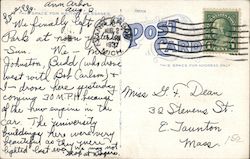 Ann Arbor
Aug 2
We finally left
Park at now
Sun. We
Johnston, Budd (who drove
west with Bob Carlson) &
I drove here yesterday
coming 30 M.P.H. because
of the new engine in the
car. The University
buildings here were very
beautiful as they were
lighted last eve.
POST CARD
THIS SPACE FOR ADDRESS
Miss G F. Dean
32 Stevens St.
E. Taunton
Mass